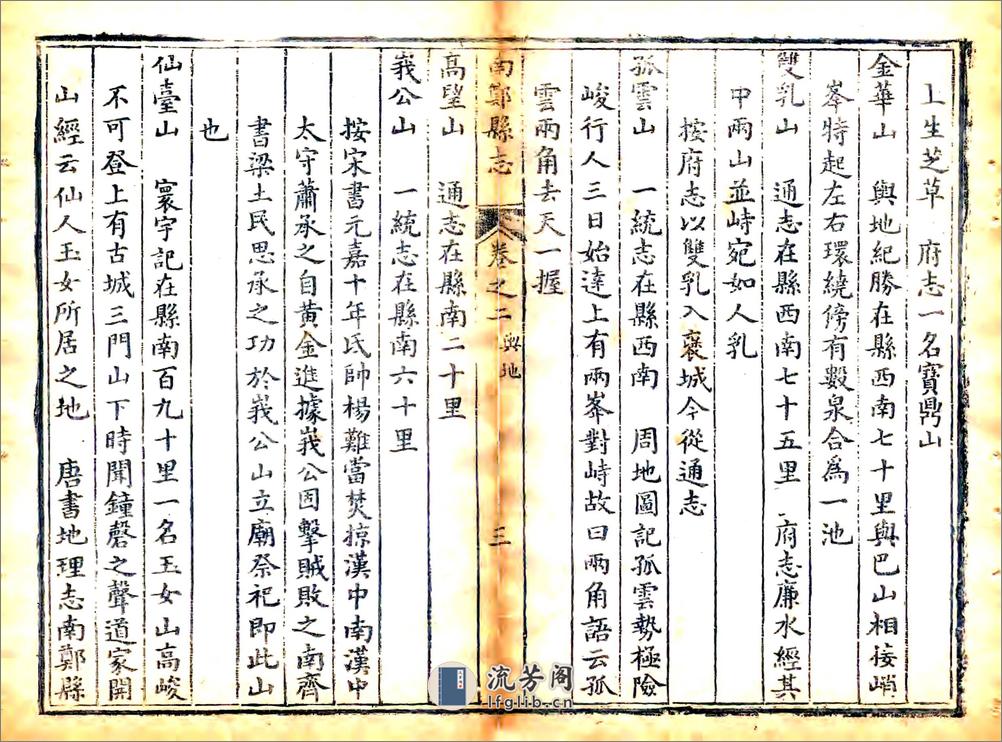 上生芝草　府志一名寶鼎山
金華山　輿地紀勝在縣西南七十里與巴山相接峭
峯特起左右環繞傍有數泉合為一池
雙乳山　通志在縣西南七十五里　府志廉水經其
中兩山並峙宛如人乳
按府志以雙乳入襃城今從通志
孤雲山　一統志在縣西南　周地圖記孤雲勢極險
峻行人三日始達上有兩峯對峙故曰兩角語云孤
雲兩角去天一握
南鄭縣志　卷之二　輿地　三
高望山　通志在縣南二十里
峩公山　一統志在縣南六十里
按宋書元嘉十年氐帥楊難當焚掠漢中南漢中
太守蕭承之自黃金進據峩公固擊賊敗之南齊
書梁土民思承之功於峩公山立廟祭祀即此山
也
仙臺山　寰宇記在縣南百九十里一名玉女山高峻
不可登上有古城三門山下時聞鐘磬之聲道家開
山經云仙人玉女所居之地　唐書地理志南鄭縣
流芳阁
lfglib.cn